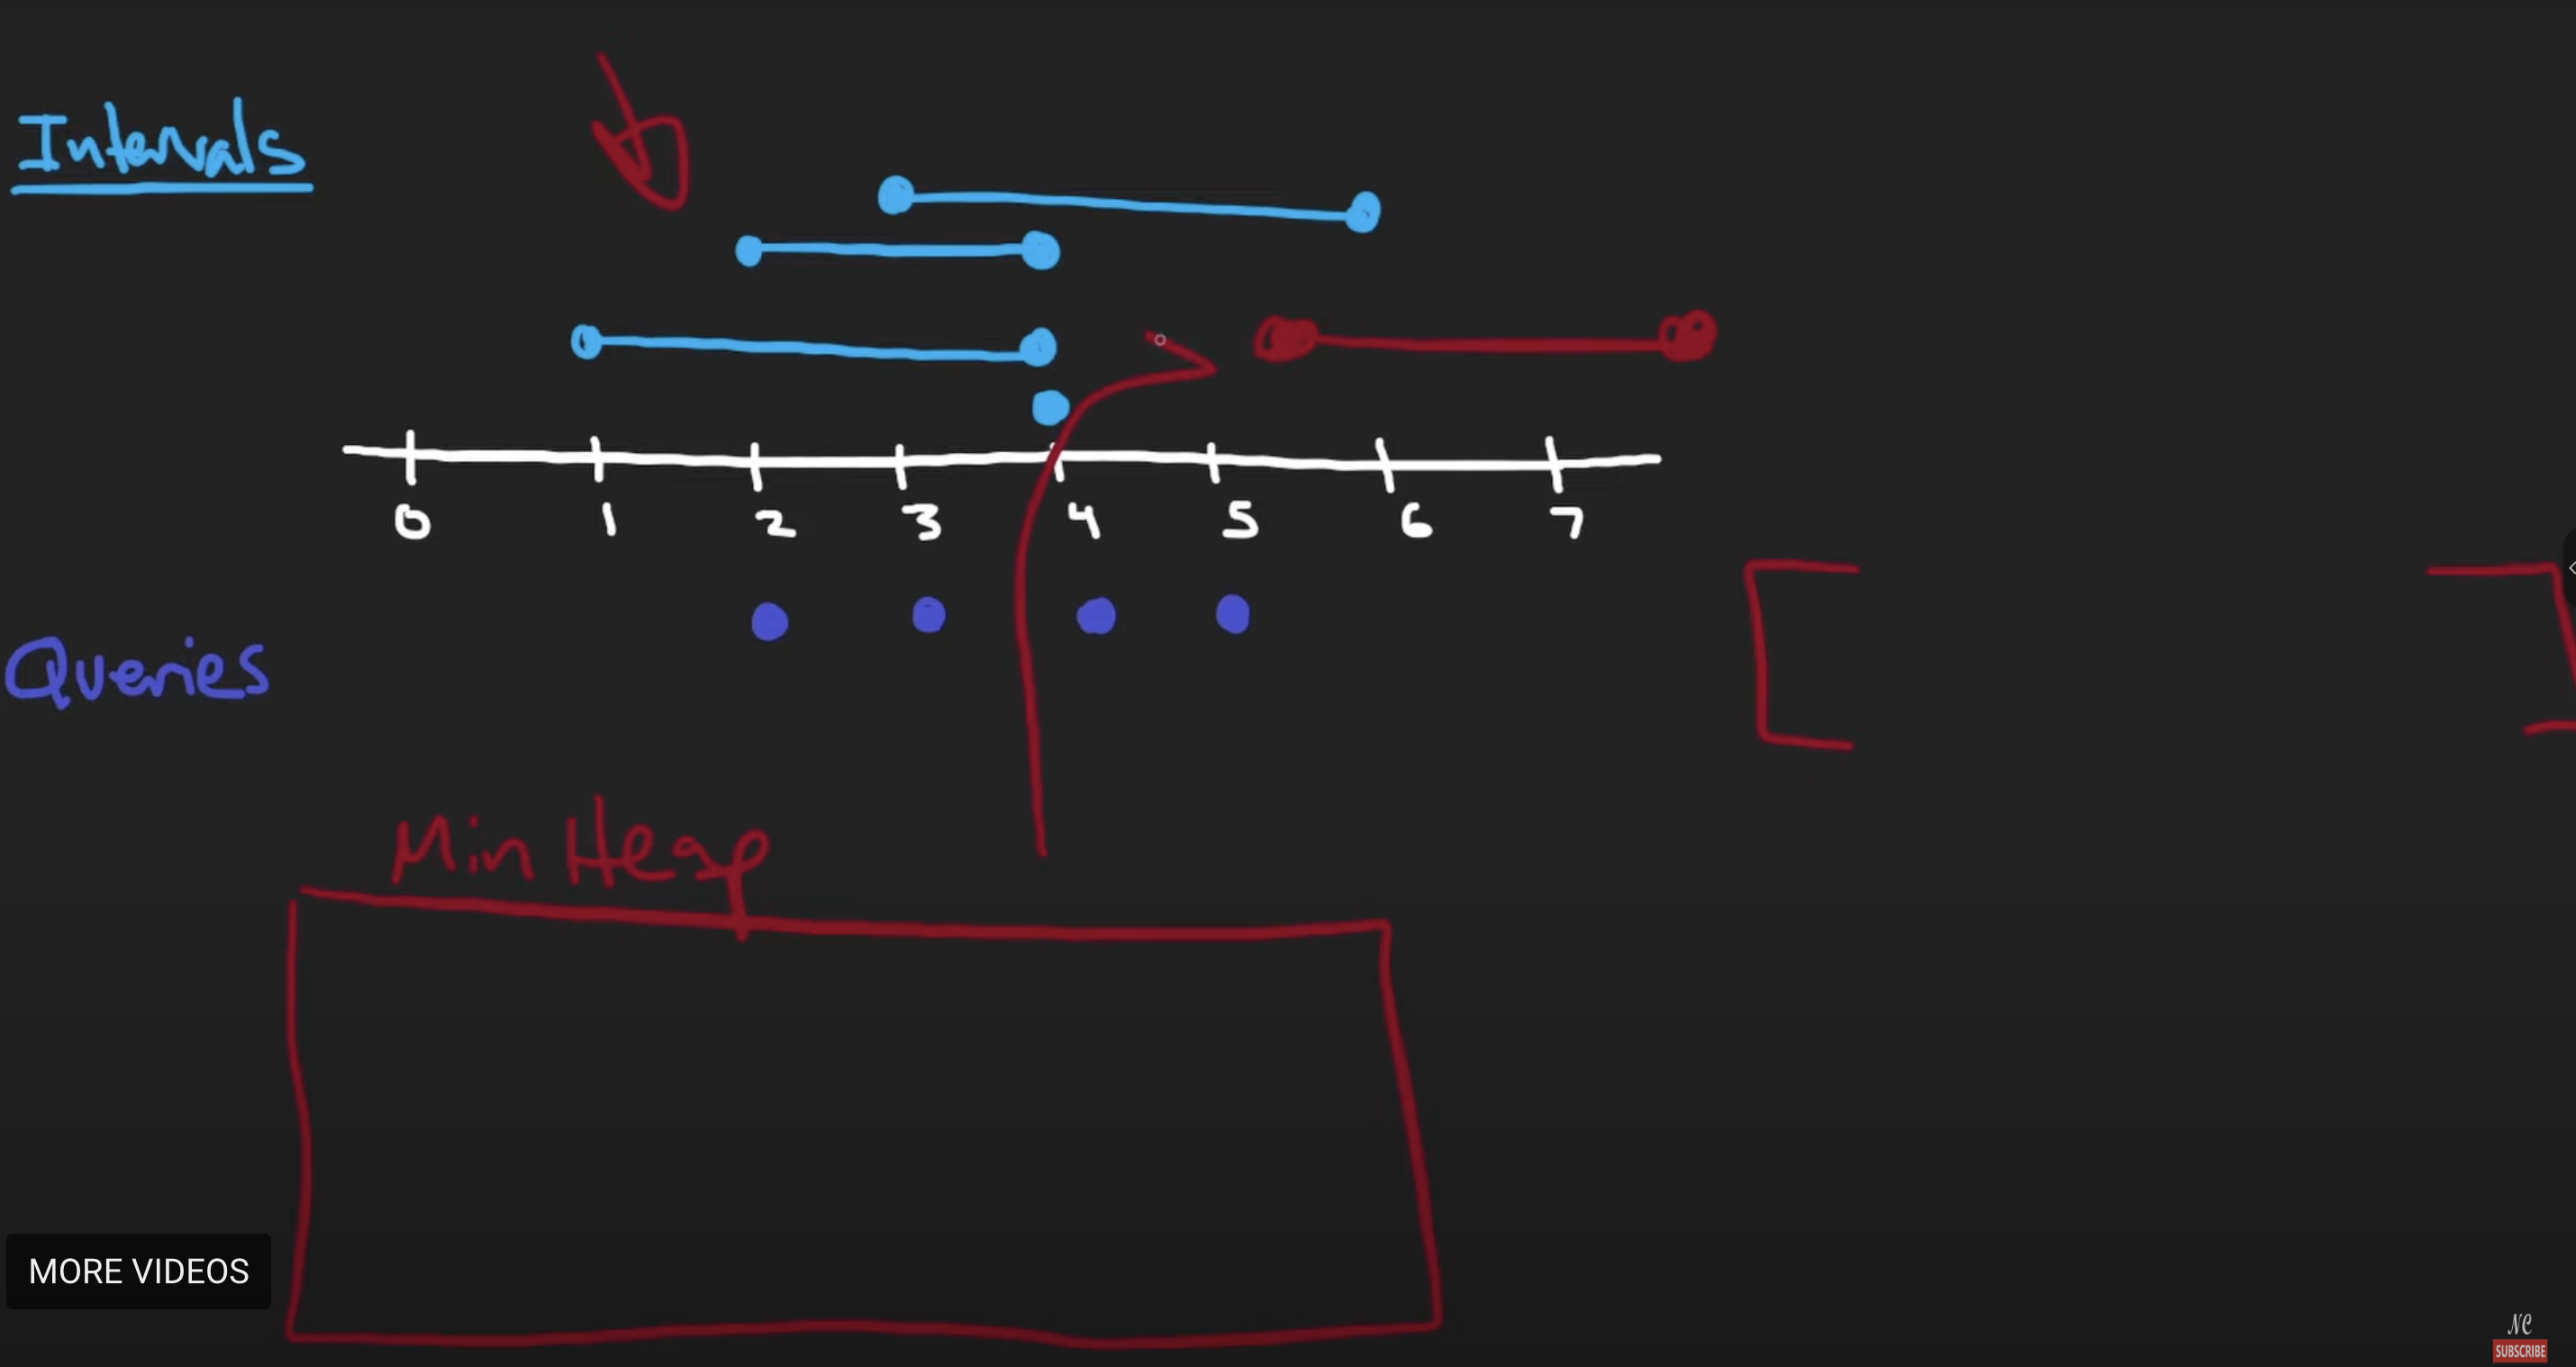 Intervals
0 1 2 3 4 5 6 7
Queries
Min Heap
MORE VIDEOS
NC
SUBSCRIBE